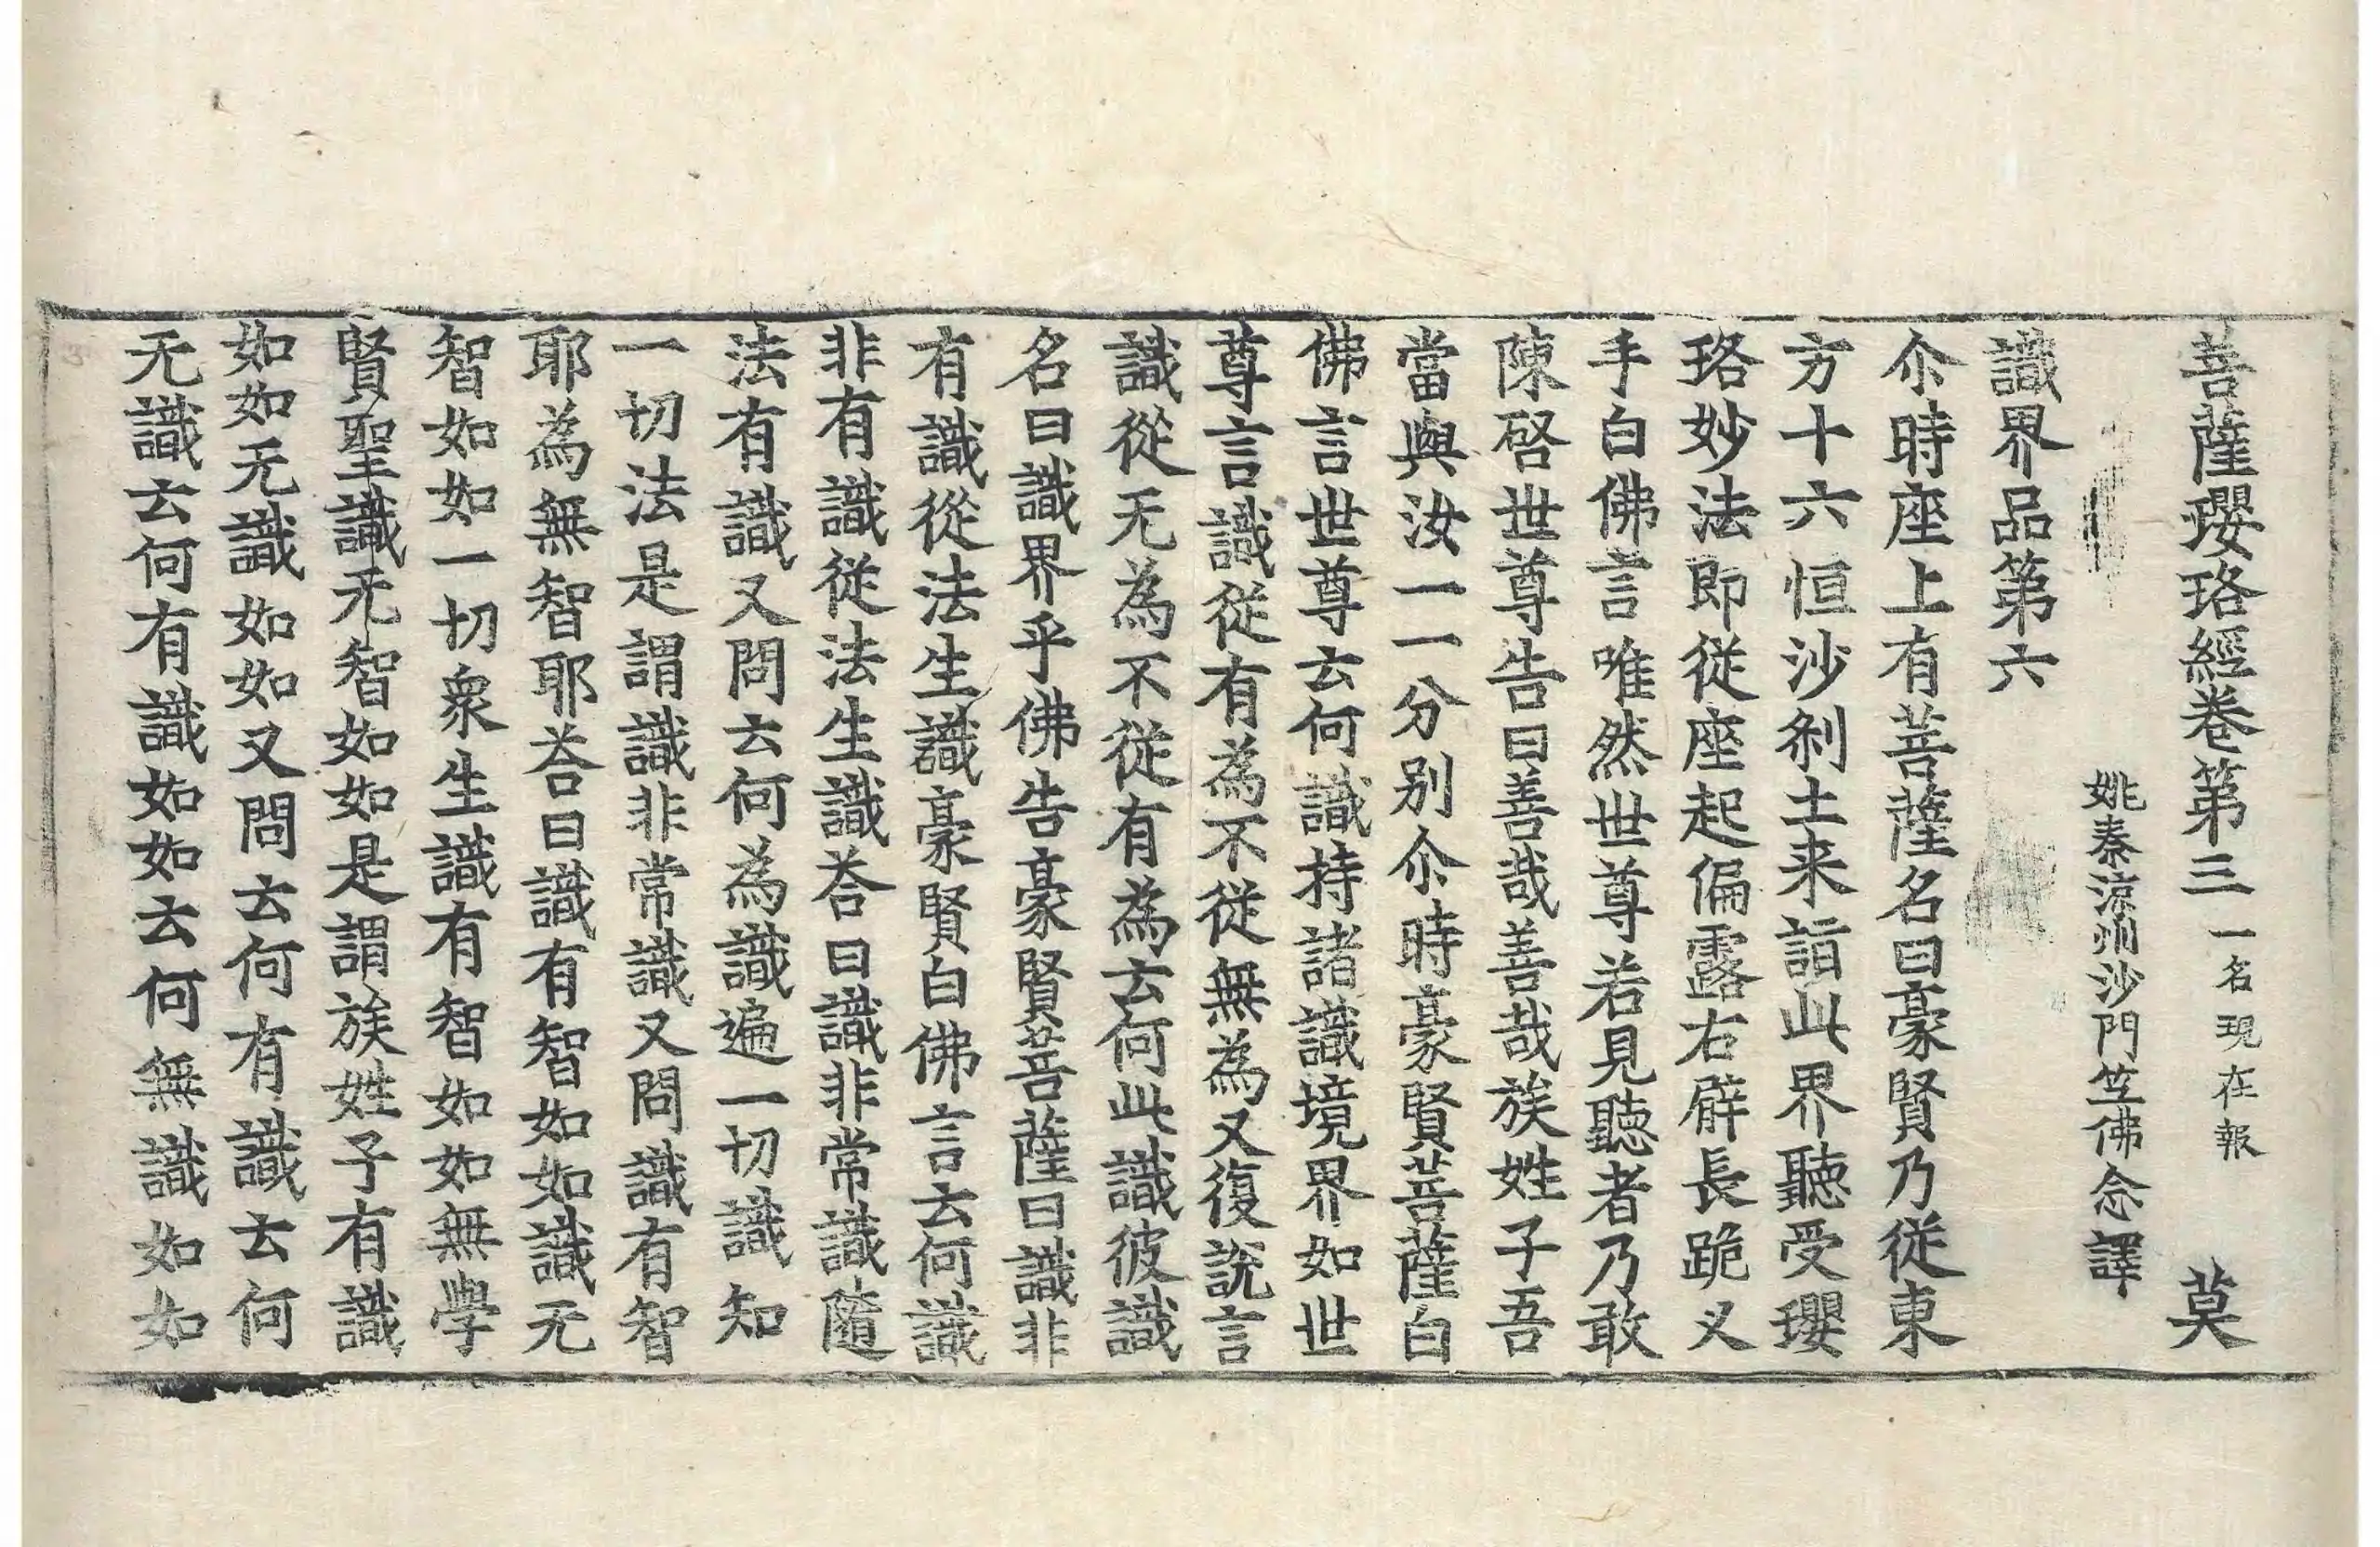 菩薩瓔珞經卷第三 一名現在報 莫
姚秦涼州沙門竺佛念譯
識界品第六
尒時座上有菩薩名曰豪賢乃從東
方十六恒沙剎土来詣此界聽受瓔
珞妙法即從座起偏露右臂長跪叉
手白佛言唯然世尊若見聽者乃敢
陳啓世尊告曰善哉善哉族姓子吾
當與汝一一分别尒時豪賢菩薩白
佛言世尊云何識持諸識境界如世
尊言識從有為不從無為又復說言
識從无為不從有為云何此識彼識
名曰識界乎佛告豪賢菩薩曰識非
有識從法生識豪賢白佛言云何識
非有識從法生識荅曰識非常識隨
法有識又問云何為識遍一切識知
一切法是謂識非常識又問識有智
耶為無智耶荅曰識有智如如識无
智如如一切衆生識有智如如無學
賢聖識无智如如是謂族姓子有識
如如无識如如又問云何有識云何
无識云何有識如如云何無識如如